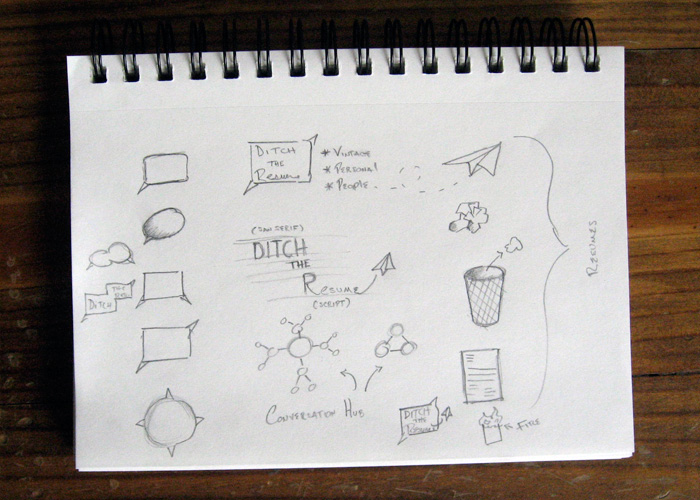 DITCH
THE
RESUME
* VINTAGE
* PERSONAL
* PEOPLE
(SAN SERIF)
DITCH
THE
RESUME
(SCRIPT)
THE
DITCH
CONVERSATION HUB
DITCH
THE
RESUME
FIRE
RESUMES